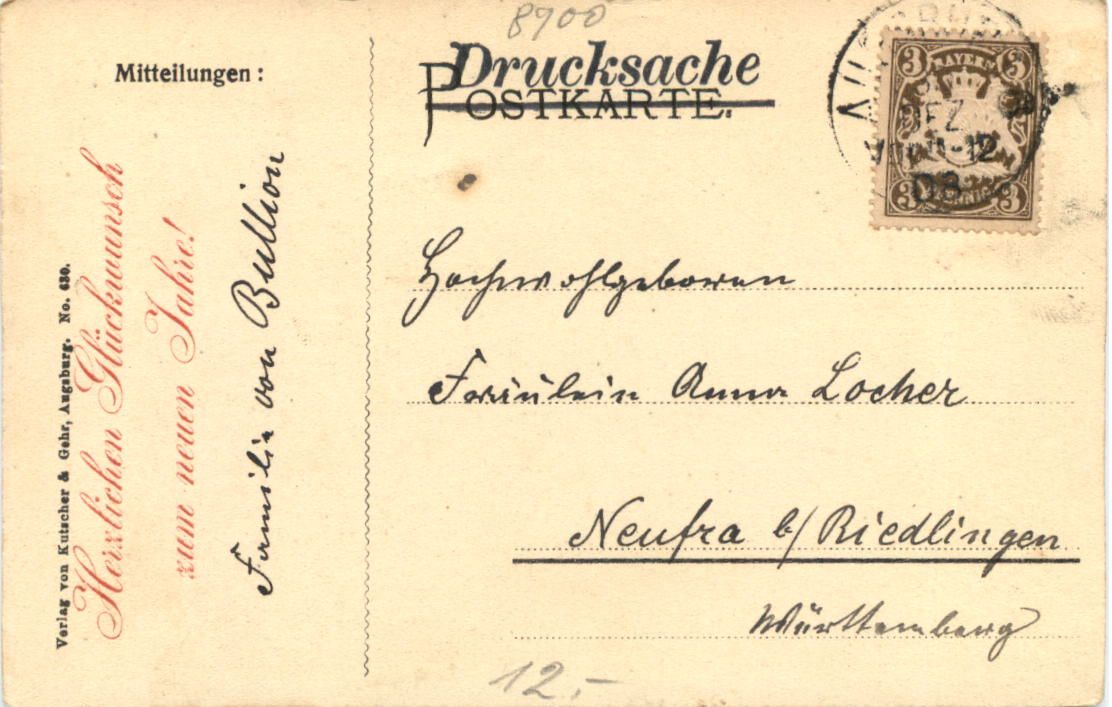 8700
Mitteilungen:
Drucksache
POSTKARTE.
3 BAYERN 3
3 3
DEZ
11-12
08
Herzlichen Glückwunsch
zum neuen Jahre!
Familie von Bullion
Verlag von Kutscher & Gehr, Augsburg. No. 630.
Hochwohlgeboren
Fräulein Anna Locher
Neufra b/Riedlingen
Württemberg
12.-